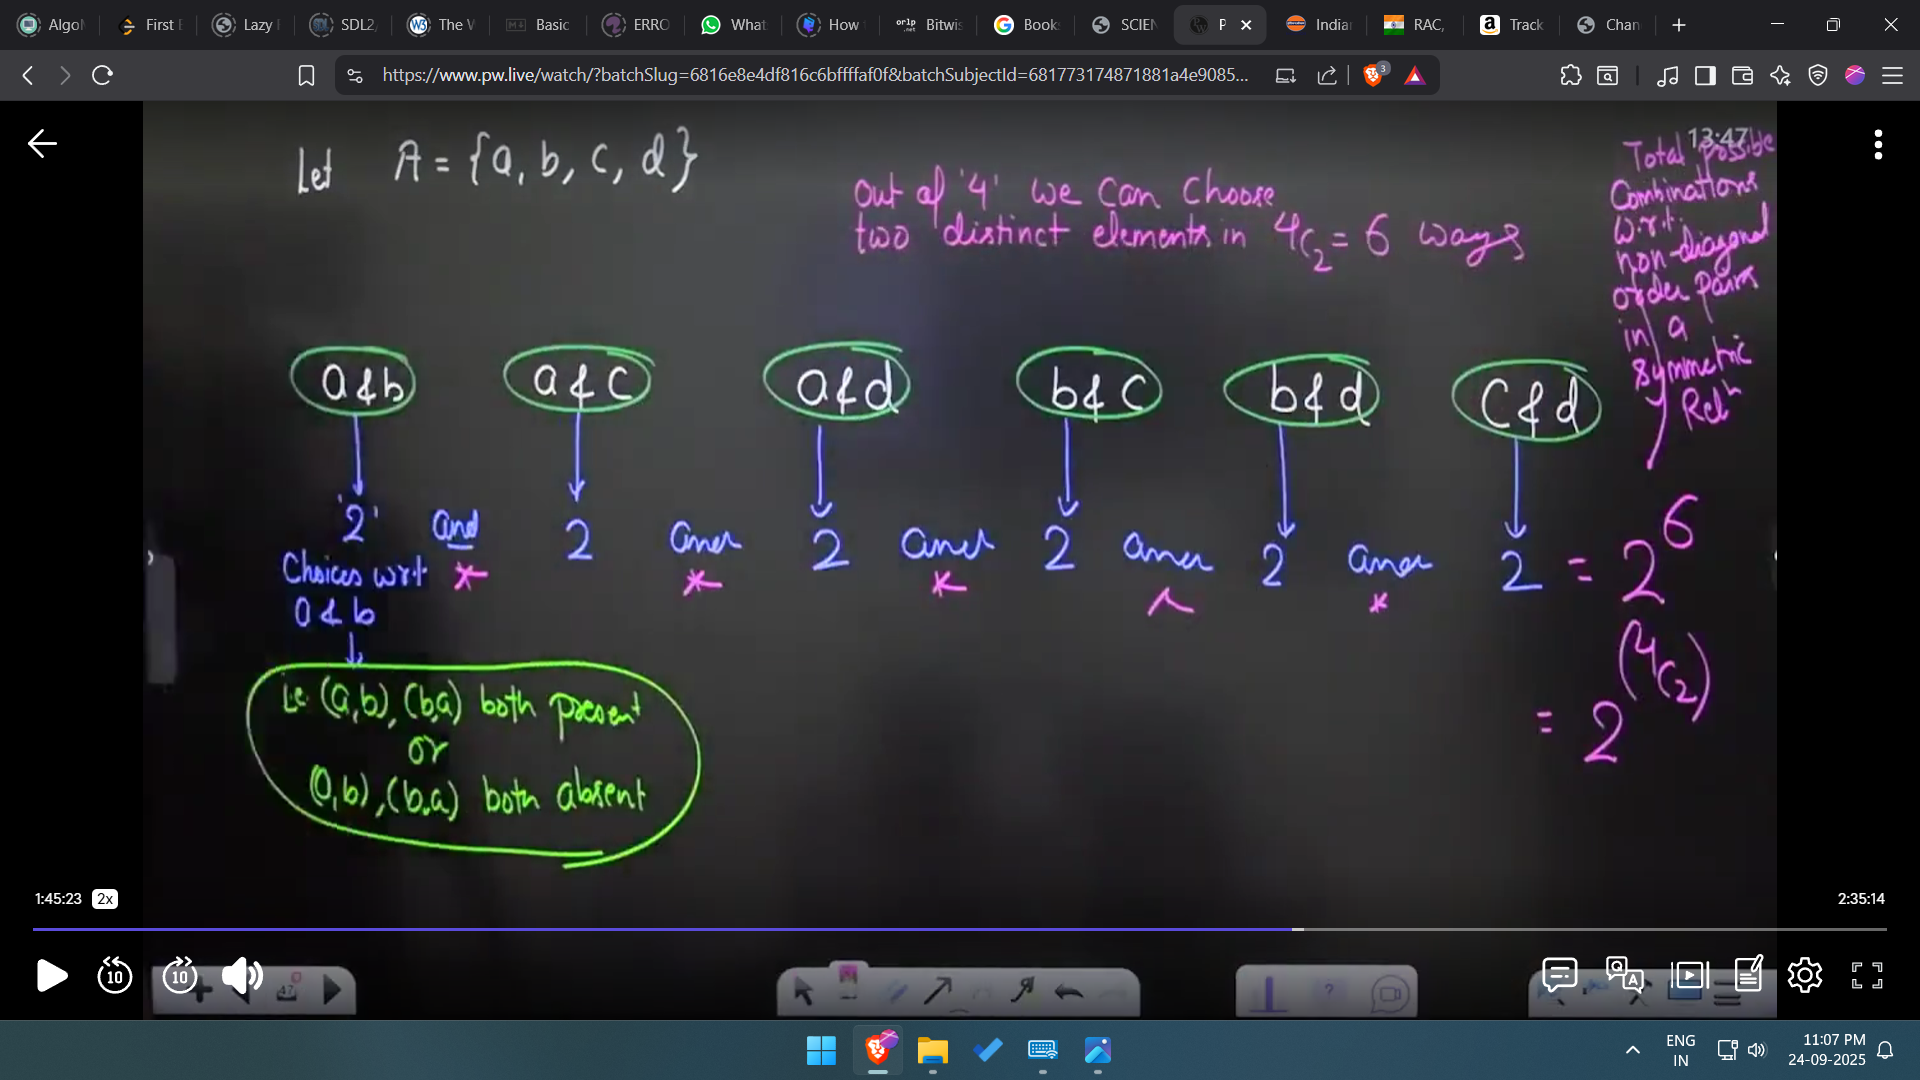 Algo
First
Lazy
SDL2,
The V
Basic
ERRO
What
How
Bitwis
Book
SCIEN
P
India
RAC,
Track
Chan
https://www.pw.live/watch/?batchSlug=6816e8e4df816c6bffffaf0f&batchSubjectId=681773174871881a4e9085...
3
13:47
Let A = {a, b, c, d}
Out of '4' we can choose
two distinct elements in 4C2 = 6 ways
Total possible
Combinations
w.r.t.
non-diagonal
order pairs
in a
symmetric
Relⁿ
a & b
a & c
a & d
b & c
b & d
c & d
'2' and 2 and 2 and 2 and 2 and 2 = 2^6
* * * * *
Choices wrt
a & b
= 2^(4C2)
i.e. (a,b), (b,a) both present
or
(a,b), (b,a) both absent
1:45:23 2x
2:35:14
10
10
47
?
ENG
IN
11:07 PM
24-09-2025